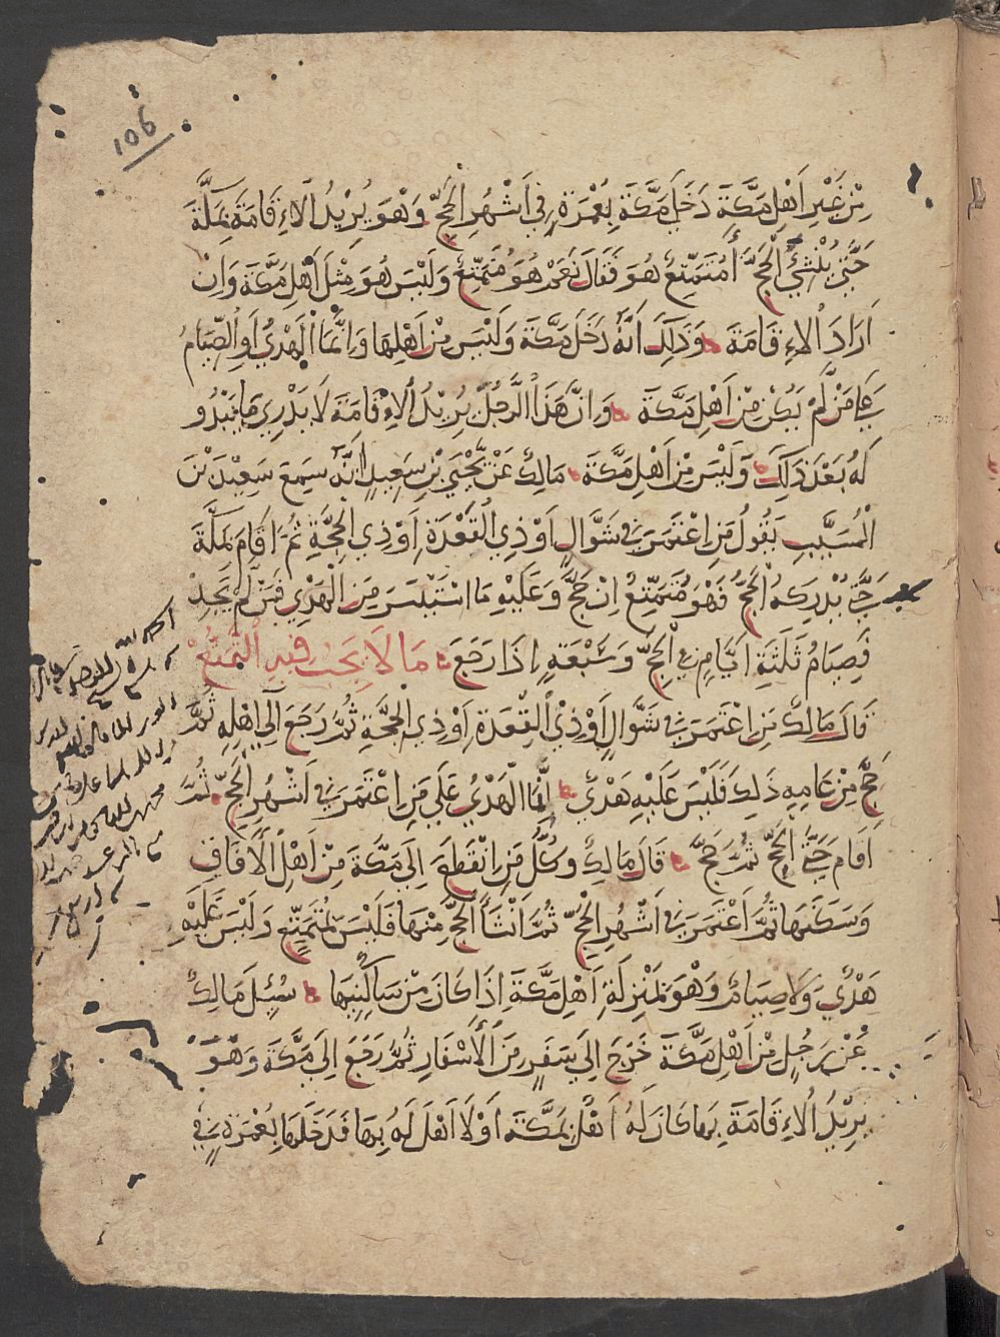 106
مِنْ غَيْرِ اَهْلِ مَكَّةَ دَخَلَ مَكَّةَ بِعُمْرَةٍ فِي اَشْهُرِ الْحَجِّ وَهْوَ يُرِيْدُ الْاِقَامَةَ بِمَكَّةَ
حَتّٰى يُنْشِئَ الْحَجَّ أَمُتَمَتِّعٌ هُوَ فَقَالَ نَعَمْ هُوَ مُتَمَتِّعٌ وَلَيْسَ هُوَ مِثْلَ اَهْلِ مَكَّةَ وَاِنْ
اَرَادَ الْاِقَامَةَ وَذٰلِكَ اَنَّهُ دَخَلَ مَكَّةَ وَلَيْسَ مِنْ اَهْلِهَا وَاِنَّمَا الْهَدْيُ اَوِ الصِّيَامُ
عَلٰى مَنْ لَمْ يَكُنْ مِنْ اَهْلِ مَكَّةَ وَاِنَّ هَذَا الرَّجُلَ يُرِيْدُ الْاِقَامَةَ لَا يَدْرِي مَا يَبْدُو
لَهُ بَعْدَ ذٰلِكَ وَلَيْسَ مِنْ اَهْلِ مَكَّةَ مَالِكٌ عَنْ يَحْيَى بْنِ سَعِيْدٍ اَنَّهُ سَمِعَ سَعِيْدَ بْنَ
الْمُسَيَّبِ يَقُولُ مَنِ اعْتَمَرَ فِي شَوَّالٍ اَوْ ذِي الْقَعْدَةِ اَوْ ذِي الْحِجَّةِ ثُمَّ اَقَامَ بِمَكَّةَ
حَتّٰى يُدْرِكَهُ الْحَجُّ فَهْوَ مُتَمَتِّعٌ اِنْ حَجَّ وَعَلَيْهِ مَا اسْتَيْسَرَ مِنَ الْهَدْيِ فَمَنْ لَمْ يَجِدْ
فَصِيَامُ ثَلٰثَةِ اَيَّامٍ فِي الْحَجِّ وَسَبْعَةٍ اِذَا رَجَعَ مَا لَا يَجِبُ فِيهِ التَّمَتُّعُ
قَالَ مَالِكٌ مَنِ اعْتَمَرَ فِي شَوَّالٍ اَوْ ذِي الْقَعْدَةِ اَوْ ذِي الْحِجَّةِ ثُمَّ رَجَعَ اِلٰى اَهْلِهِ ثُمَّ
حَجَّ مِنْ عَامِهِ ذٰلِكَ فَلَيْسَ عَلَيْهِ هَدْيٌ اِنَّمَا الْهَدْيُ عَلٰى مَنِ اعْتَمَرَ فِي اَشْهُرِ الْحَجِّ ثُمَّ
اَقَامَ حَتَّى الْحَجِّ ثُمَّ حَجَّ قَالَ مَالِكٌ وَكُلُّ مَنِ انْقَطَعَ اِلٰى مَكَّةَ مِنْ اَهْلِ الْاٰفَاقِ
وَسَكَنَهَا ثُمَّ اعْتَمَرَ فِي اَشْهُرِ الْحَجِّ ثُمَّ اَنْشَأَ الْحَجَّ مِنْهَا فَلَيْسَ بِمُتَمَتِّعٍ وَلَيْسَ عَلَيْهِ
هَدْيٌ وَلَا صِيَامٌ وَهْوَ بِمَنْزِلَةِ اَهْلِ مَكَّةَ اِذَا كَانَ مِنْ سَاكِنِيهَا سُئِلَ مَالِكٌ
عَنْ رَجُلٍ مِنْ اَهْلِ مَكَّةَ خَرَجَ اِلٰى سَفَرٍ مِنَ الْاَسْفَارِ ثُمَّ رَجَعَ اِلٰى مَكَّةَ وَهْوَ
يُرِيْدُ الْاِقَامَةَ بِهَا كَانَ لَهُ اَهْلٌ بِمَكَّةَ اَوْ لَا اَهْلَ لَهُ بِهَا فَدَخَلَهَا بِعُمْرَةٍ فِي